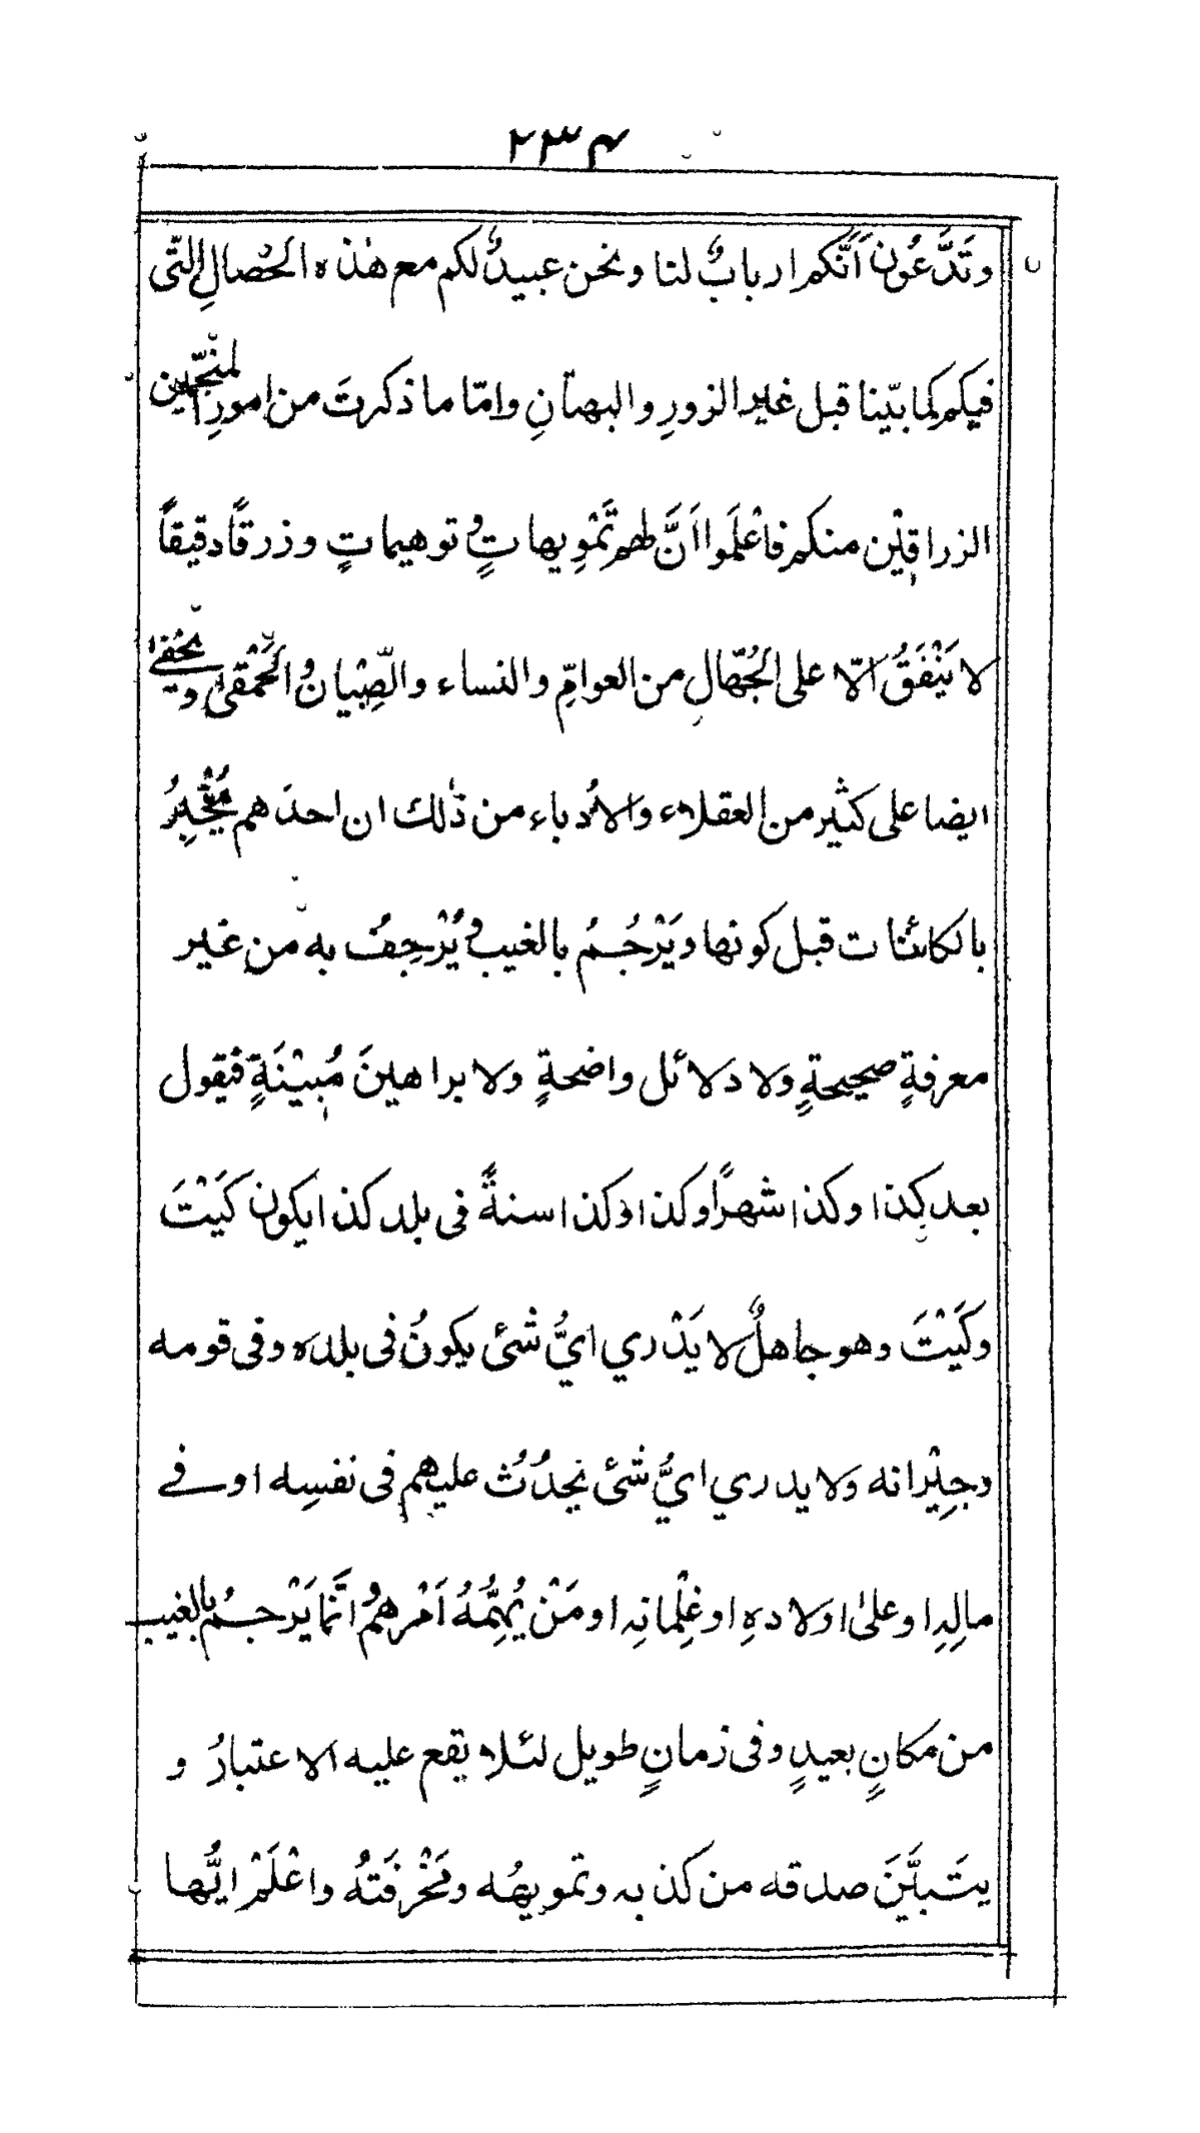 ۲۳۴
وتَدَّعُون اَنَّكم اربابٌ لنا ونحن عبيدٌ لكم مع هٰذه الخصالِ الّتى
فيكم كما بيّنا قبل غير الزورِ والبهتانِ وامّا ما ذكرتَ من امورِ المنجّمين
الزراقِيْن منكم فاعْلَموا اَنَّ لهم تَمْوِيهاتٍ وتوهيماتٍ وزرقًا دقيقاً
لا يَنْفَقُ الّا على الجُهّالِ من العوامِّ والنساء والصِّبْيانُ الحَمْقىٰ ويخفىٰ
ايضا على كثير من العقلاء والأدباء من ذٰلك ان احدَهم يُخْبِرُ
بالكائنات قبل كونها ويَرْجُمُ بالغيب ويُرْجِفُ به من غير
معرفةٍ صحيحةٍ ولا دلائل واضحةٍ ولا براهينَ مُبيْنَةٍ فيقول
بعد كذا وكذا شهرًا وكذا وكذا سنةً فى بلد كذا يكون كَيْتَ
وكَيْتَ وهو جاهلٌ لا يَدْري ايُّ شئى يكونُ فى بلده وفى قومه
وجِيْرانه ولا يدري ايُّ شئى يحدُثُ عليهم فى نفسِه او فے
مالِهِ او علىٰ اولادهِ او غِلْمانِه او مَنْ يُهِمُّهُ اَمْرهمُ انَّما يَرْجُمُ بالغيب
من مكانٍ بعيدٍ وفى زمانٍ طويل لئلا يقع عليه الاعتبارُ و
يتَبيَّنَ صدقه من كذبه وتمويهُه ومَخْرَفَتهُ واعْلَمْ ايُّها